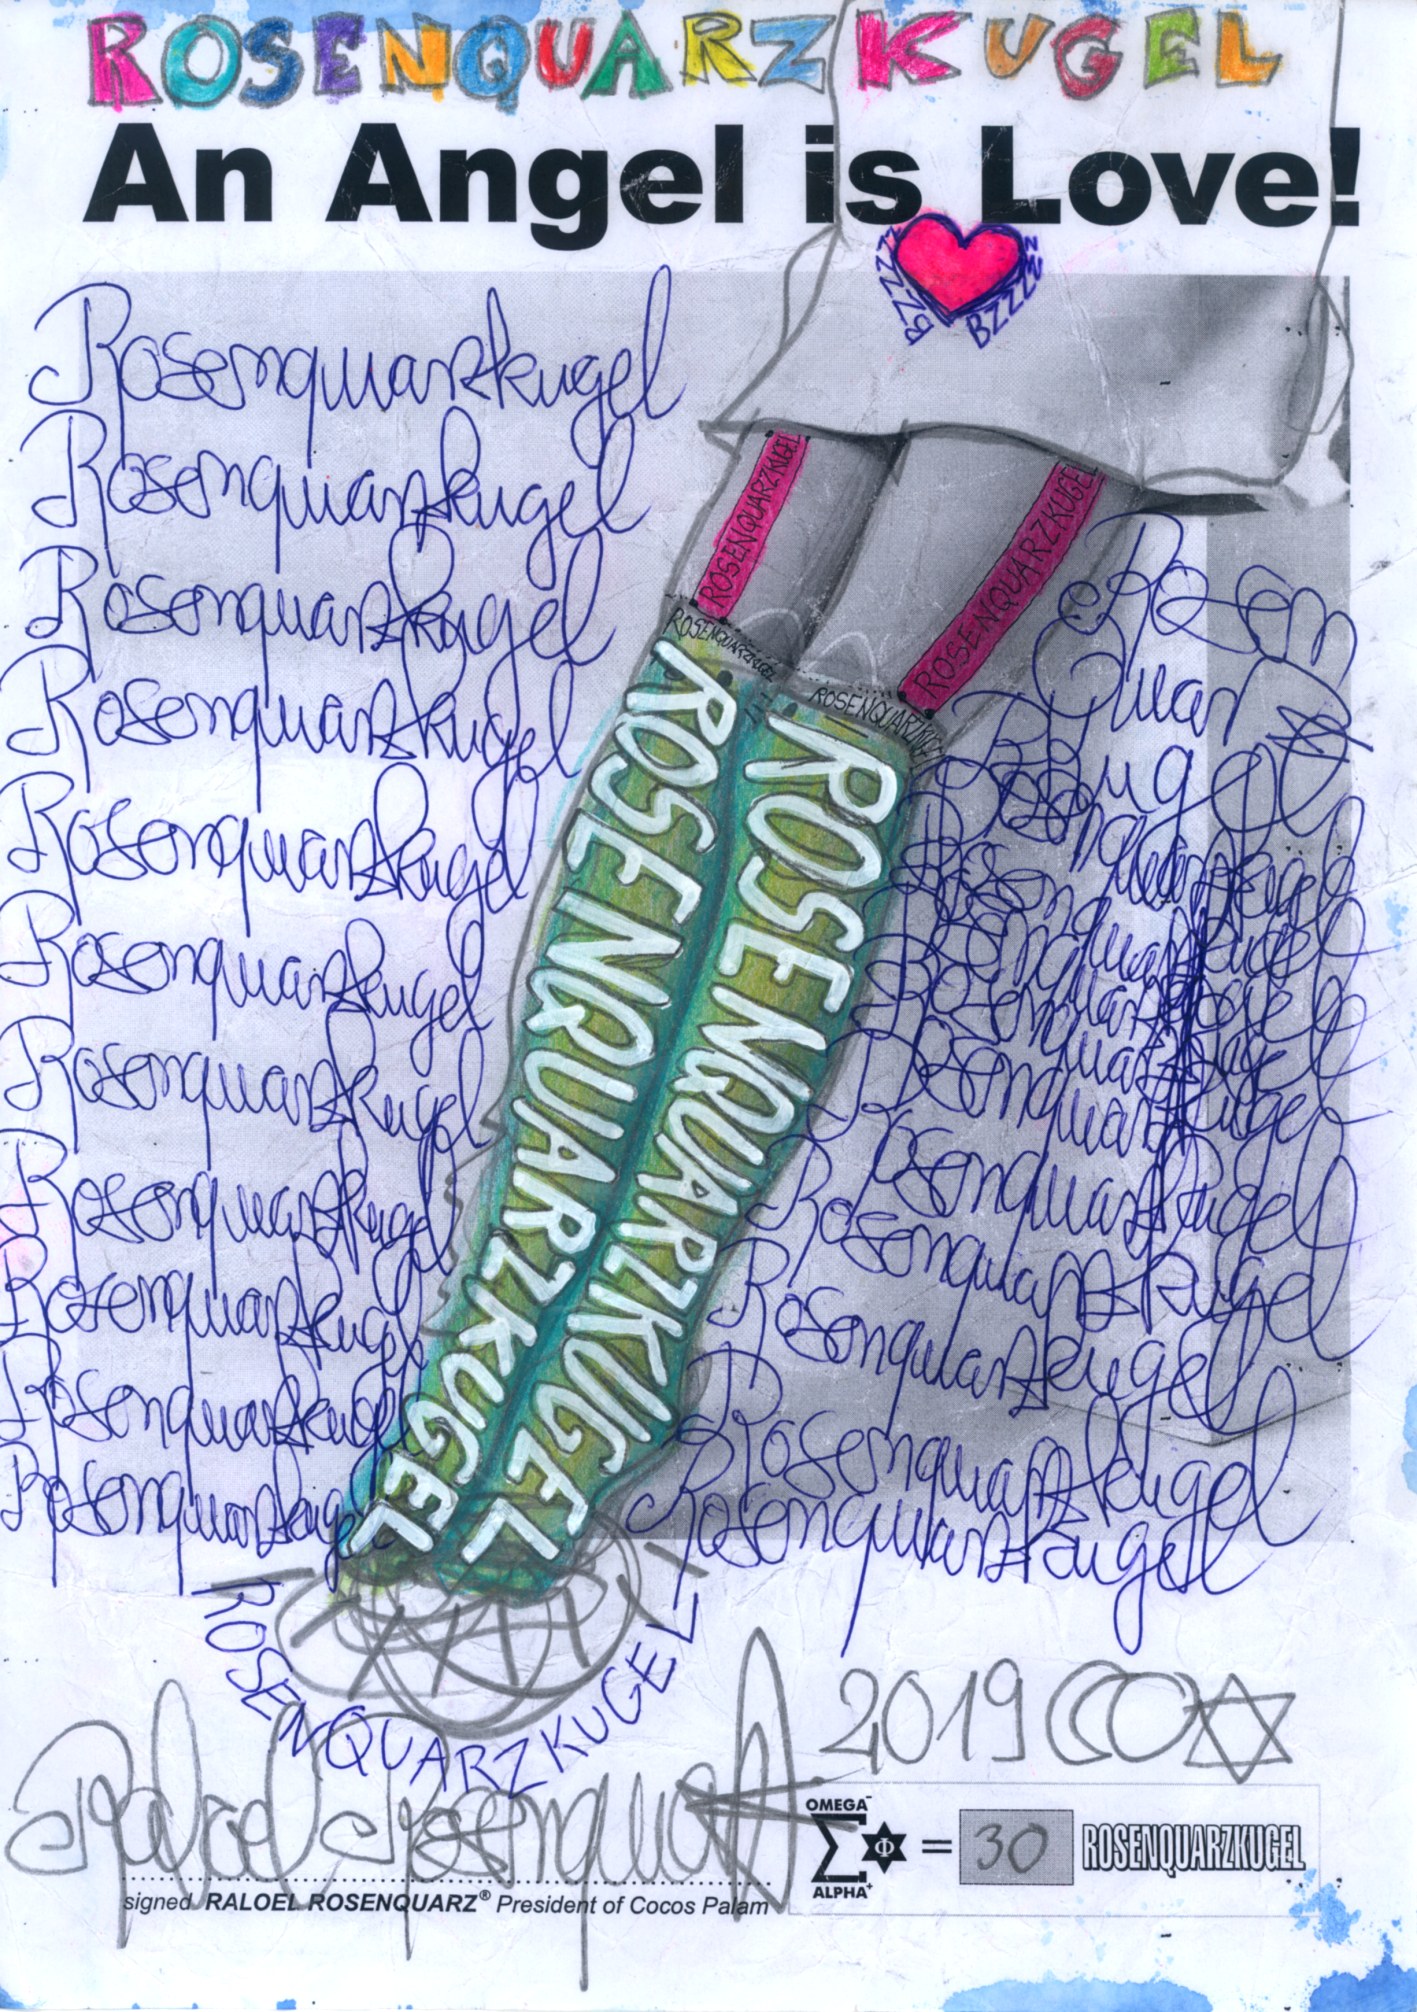 ROSENQUARZKUGEL
An Angel is Love!
BZZZZ
BZZZZ
Rosenquarzkugel
Rosenquarzkugel
Rosenquarzkugel
Rosenquarzkugel
Rosenquarzkugel
Rosenquarzkugel
Rosenquarzkugel
Rosenquarzkugel
Rosenquarzkugel
Rosenquarzkugel
Rosenquarzkugel
ROSENQUARZKUGEL
ROSENQUARZKUGEL
ROSENQUARZKUGEL
ROSENQUARZKUGEL
ROSENQUARZKUGEL
ROSENQUARZKUGEL
Rosen
Quarz
Kugel
Rosenquarzkugel
Rosenquarzkugel
Rosenquarzkugel
Rosenquarzkugel
Rosenquarzkugel
Rosenquarzkugel
Rosenquarzkugel
Rosenquarzkugel
Rosenquarzkugel
Rosenquarzkugel
ROSENQUARZKUGEL
2019
Raloel Rosenquarz
signed RALOEL ROSENQUARZ® President of Cocos Palam
OMEGA⁻
Σ Φ = 30 ROSENQUARZKUGEL
ALPHA⁺